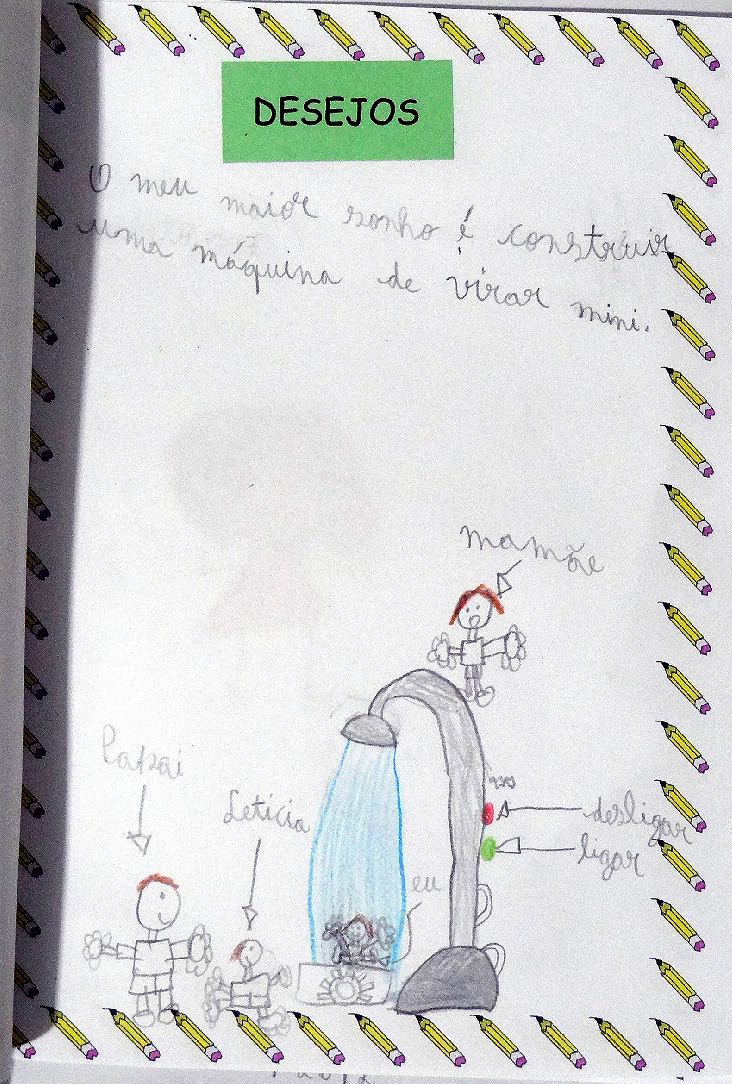 DESEJOS
O meu maior sonho é construir
uma máquina de virar mini.
mamãe
Papai
Letícia
desligar
ligar
eu